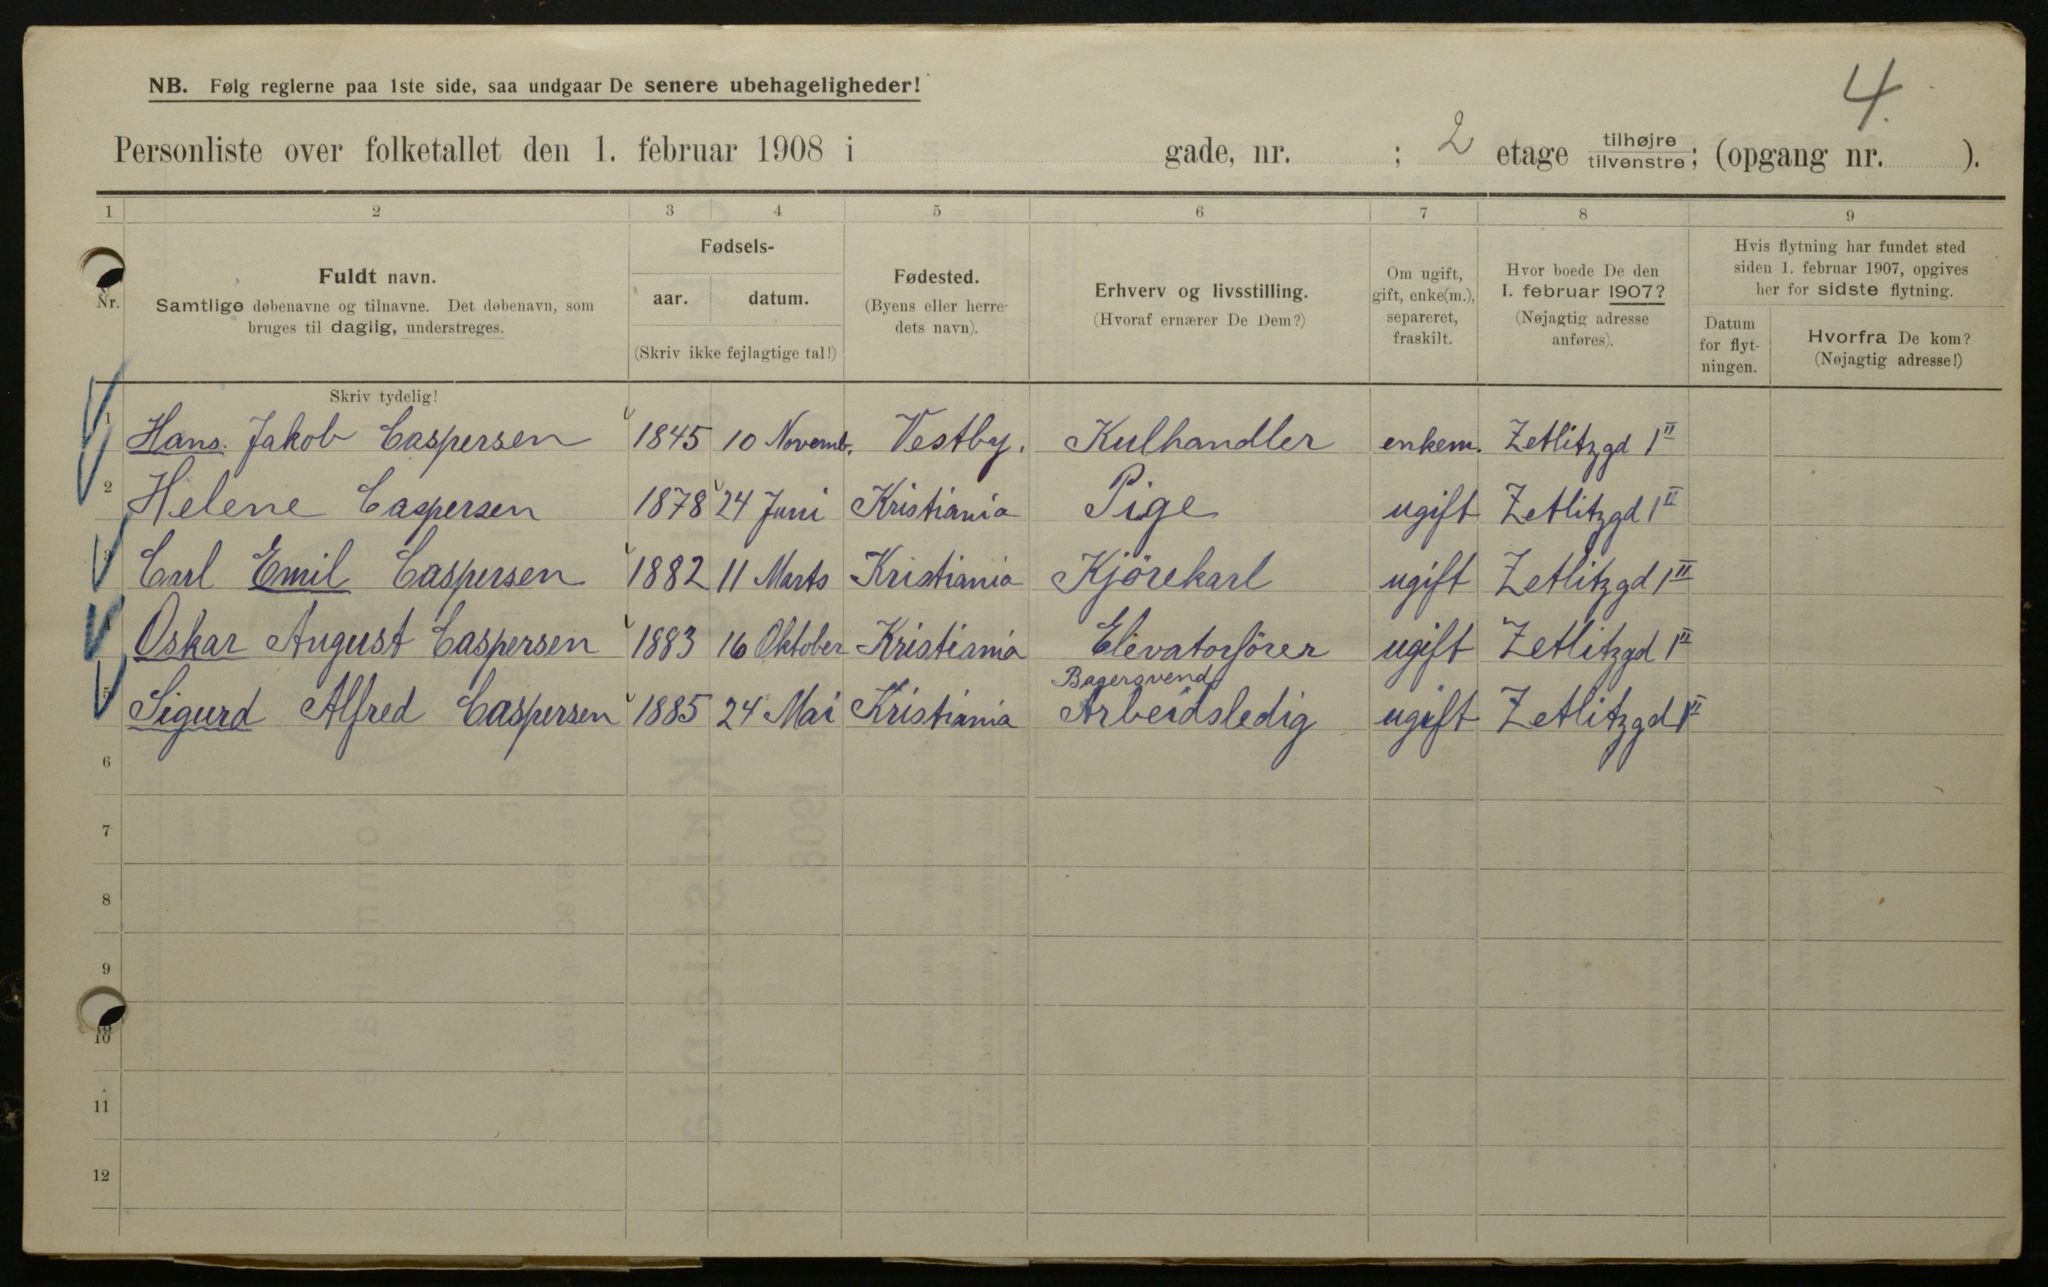 4.
NB. Følg reglerne paa 1ste side, saa undgaar De senere ubehageligheder!
Personliste over folketallet den 1. februar 1908 i gade, nr. ; 2 etage tilhøjre tilvenstre; (opgang nr. ).
1 2 3 4 5 6 7 8 9
Nr.
Fuldt navn.
Samtlige døbenavne og tilnavne. Det døbenavn, som
bruges til daglig, understreges.
Skriv tydelig!
Fødsels-
aar. datum.
(Skriv ikke fejlagtige tal!)
Fødested.
(Byens eller herre-
dets navn).
Erhverv og livsstilling.
(Hvoraf ernærer De Dem?)
Om ugift,
gift, enke(m.),
separeret,
fraskilt.
Hvor boede De den
1. februar 1907?
(Nøjagtig adresse
anføres).
Hvis flytning har fundet sted
siden 1. februar 1907, opgives
her for sidste flytning.
Datum
for flyt-
ningen.
Hvorfra De kom?
(Nøjagtig adresse!)
1 Hans. Jakob Caspersen 1845 10 Novemb. Vestby. Kulhandler enkem. Zetlitzgd 1 II
2 Helene Caspersen 1878 24 Juni Kristiania Pige ugift Zetlitzgd 1 II
3 Carl Emil Caspersen 1882 11 Marts Kristiania Kjörekarl ugift Zetlitzgd 1 II
Oskar August Caspersen 1883 16 Oktober Kristiania Elevatorförer ugift Zetlitzgd 1 II
Bagersvend
5 Sigurd Alfred Caspersen 1885 24 Mai Kristiania Arbeidsledig ugift Zetlitzgd 1 II
6
7
8
9
10
11
12